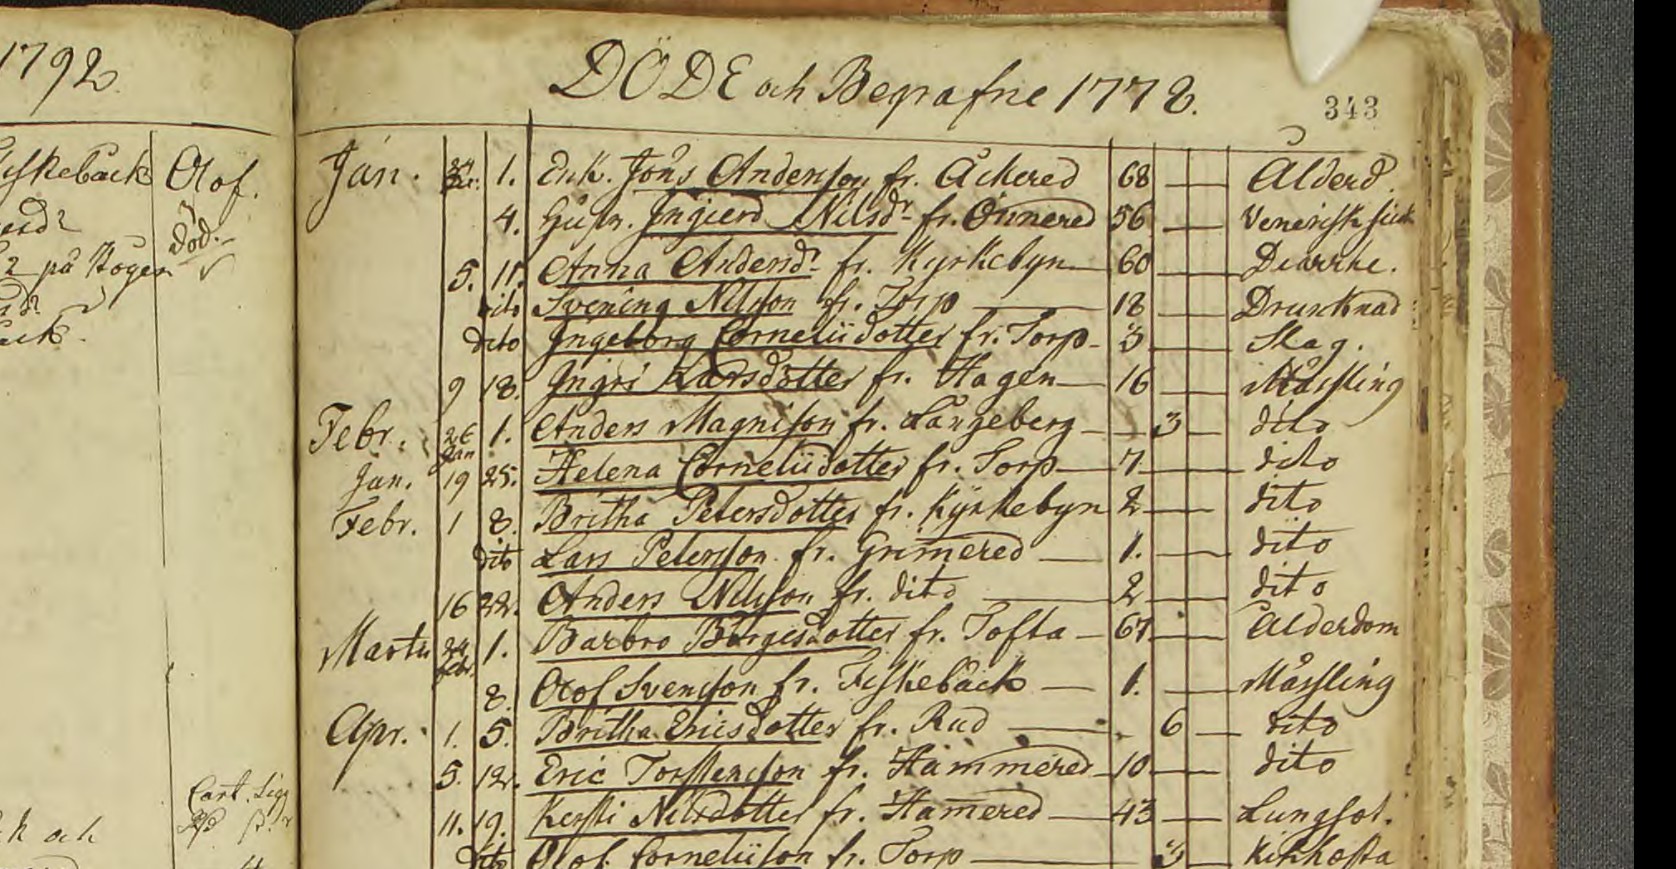 1792
Fiskebäck Olof.
död.
2 på Hogen
och
DÖDE och Begrafne 1778.
343
Jan. 1. Enk. Jöns Anderson fr. Åckered 68 Ålderd.
4. Hustr. Ingierd Nilsdr. fr. Önnered 56 Venerisk siuk
5. 11. Anna Andersdr. fr. Kyrkebyn 60 Diarrhe.
dito Svening Nilsson fr. Torp 18 Druncknad
dito Ingeborg Corneliidotter fr. Torp 3 Slag.
9 18. Ingri Larsdotter fr. Hagen 16 Mässling
Febr. 26 Jan 1. Anders Magnison fr. Långeberg 3 dito
Jan. 19 25. Helena Corneliidotter fr. Torp 7 dito
Febr. 1 8. Britha Petersdotter fr. Kyrkebyn 2 dito
dito Lars Peterson fr. Grimered 1. dito
16 22. Anders Nilsson fr. dito 2 dito
Martii 24 febr. 1. Barbro Börgesdotter fr. Tofta 67 Ålderdom
8. Olof Svenson fr. Fiskebäck 1. Måssling
Apr. 1. 5. Britha Ericsdotter fr. Rud 6 dito
5. 12. Eric Torstenson fr. Hammered 10 dito
11. 19. Kersti Nilsdotter fr. Hamered 43 Lungsot.
dito Olof Corneliison fr. Torp 3 Kikhosta